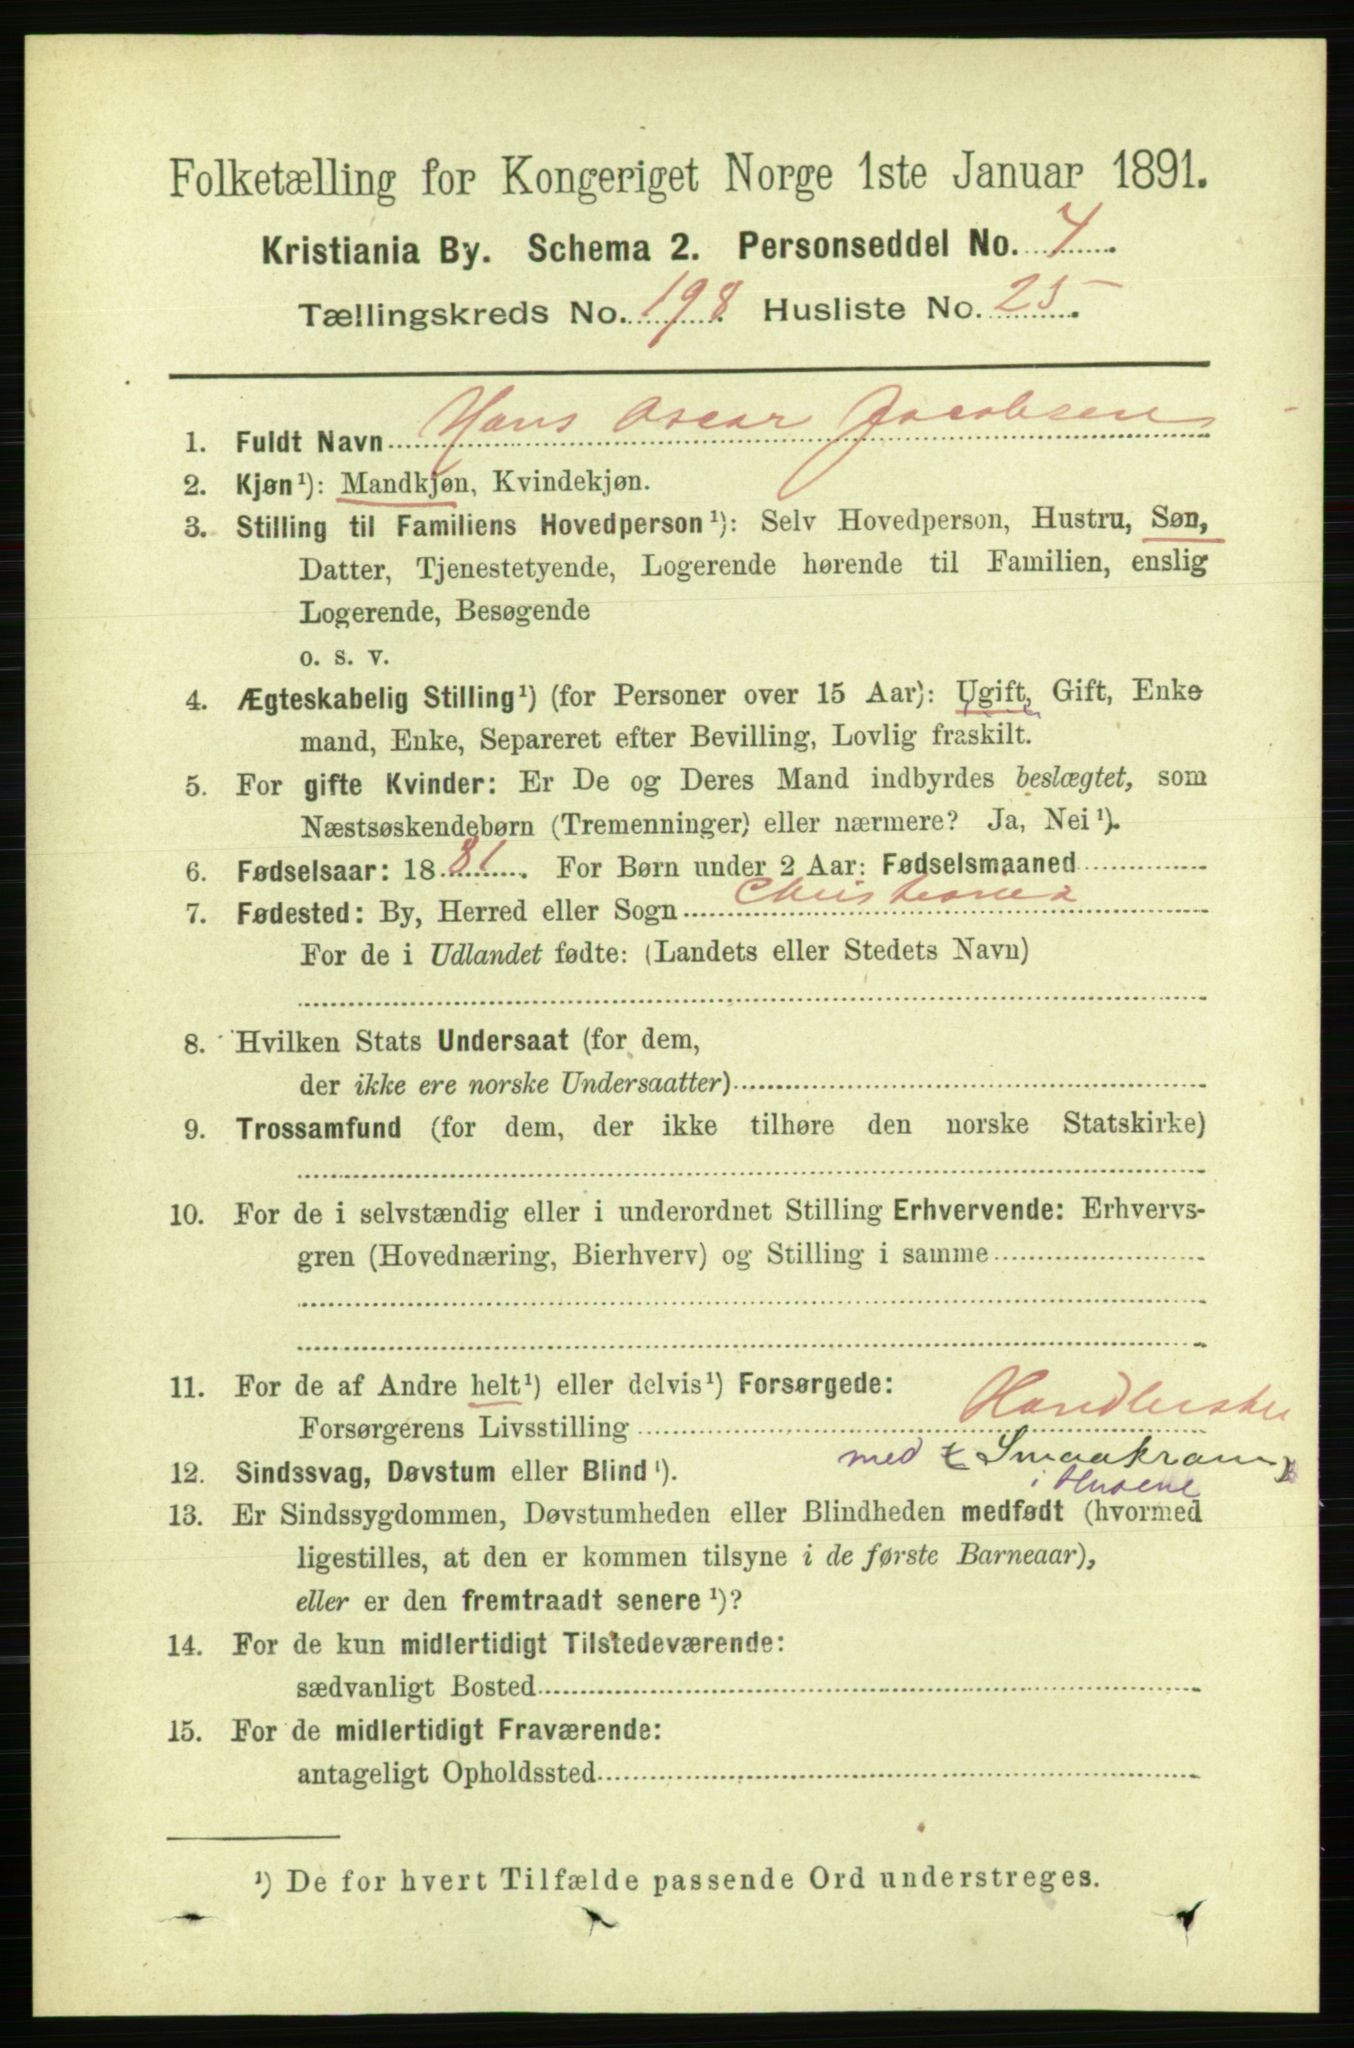 Folketælling for Kongeriget Norge 1ste Januar 1891.
Kristiania By. Schema 2. Personseddel No. 4
Tællingskreds No. 198. Husliste No. 25.
1. Fuldt Navn Hans Oscar Jacobsen
2. Kjøn¹): Mandkjøn, Kvindekjøn.
3. Stilling til Familiens Hovedperson¹): Selv Hovedperson, Hustru, Søn,
Datter, Tjenestetyende, Logerende hørende til Familien, enslig
Logerende, Besøgende
o. s. v.
4. Ægteskabelig Stilling¹) (for Personer over 15 Aar): Ugift, Gift, Enke
mand, Enke, Separeret efter Bevilling, Lovlig fraskilt.
5. For gifte Kvinder: Er De og Deres Mand indbyrdes beslægtet, som
Næstsøskendebørn (Tremenninger) eller nærmere? Ja, Nei¹).
6. Fødselsaar: 1881. For Børn under 2 Aar: Fødselsmaaned
7. Fødested: By, Herred eller Sogn Christiania
For de i Udlandet fødte: (Landets eller Stedets Navn)
8. Hvilken Stats Undersaat (for dem,
der ikke ere norske Undersaatter)
9. Trossamfund (for dem, der ikke tilhøre den norske Statskirke)
10. For de i selvstændig eller i underordnet Stilling Erhvervende: Erhvervs-
gren (Hovednæring, Bierhverv) og Stilling i samme
11. For de af Andre helt¹) eller delvis¹) Forsørgede:
Forsørgerens Livsstilling Handlerske
med Smaakram
i Husene
12. Sindssvag, Døvstum eller Blind¹).
13. Er Sindssygdommen, Døvstumheden eller Blindheden medfødt (hvormed
ligestilles, at den er kommen tilsyne i de første Barneaar),
eller er den fremtraadt senere¹)?
14. For de kun midlertidigt Tilstedeværende:
sædvanligt Bosted
15. For de midlertidigt Fraværende:
antageligt Opholdssted
¹) De for hvert Tilfælde passende Ord understreges.